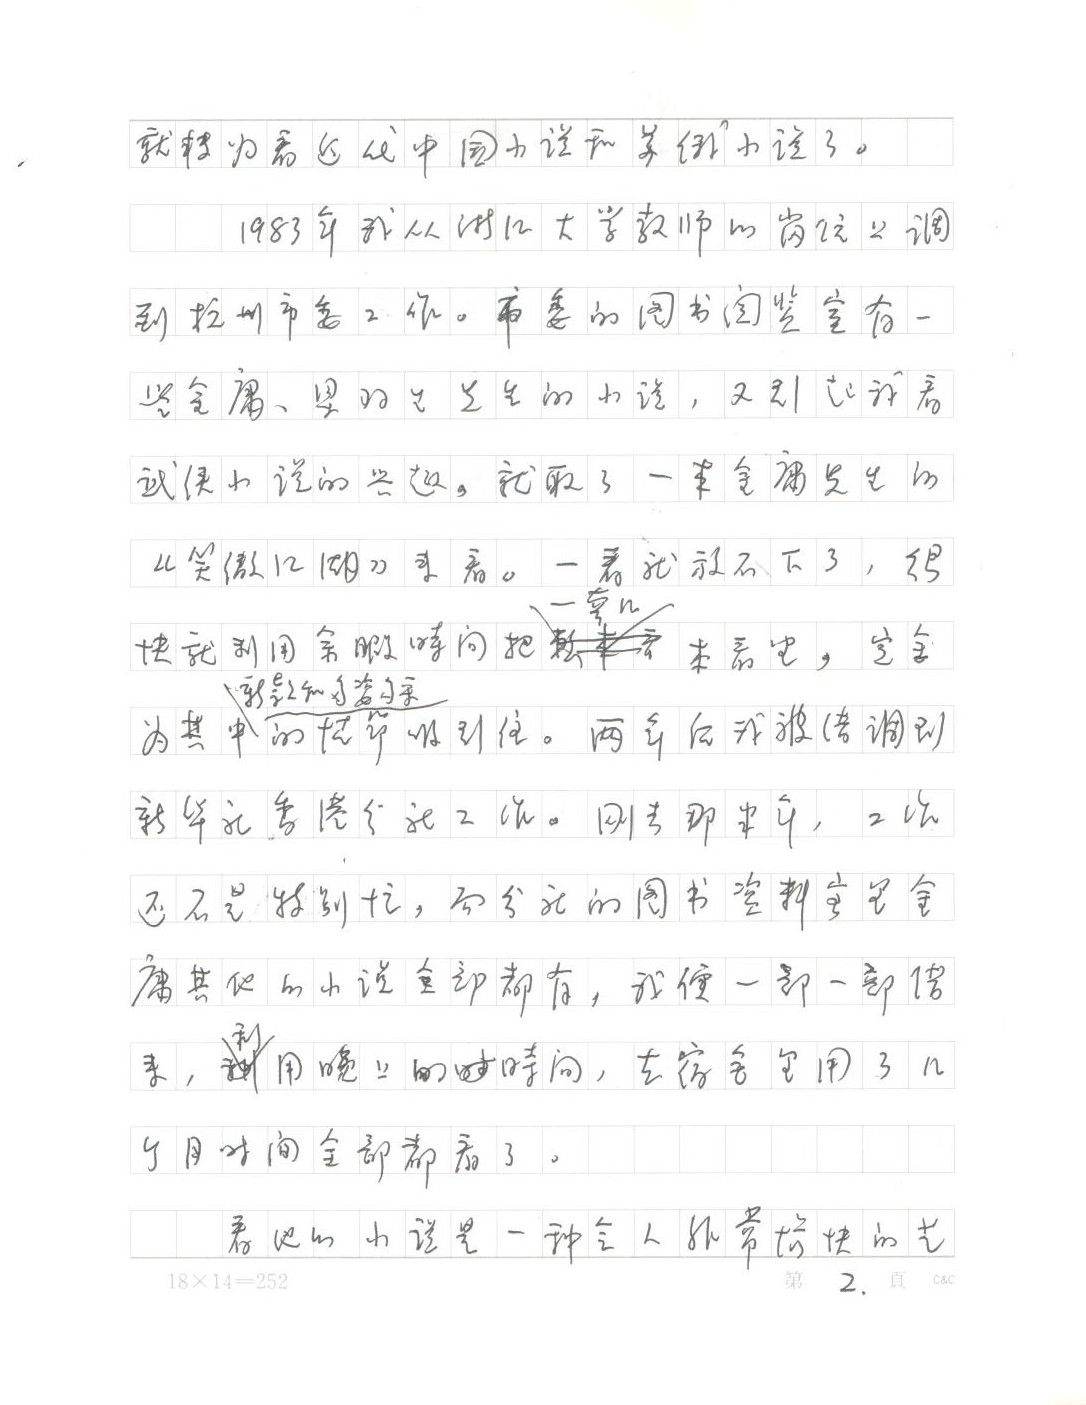 就转为看近代中国小说和苏俄小说了。
1983年我从浙江大学教师的岗位上调
到杭州市委工作。市委的图书阅览室有一
些金庸、梁羽生先生的小说，又引起我看
武侠小说的兴趣。就取了一本金庸先生的
《笑傲江湖》来看。一看就放不下了，很
一套几
快就利用余暇時间把本看完，完全
新款
为其中的情节吸引住。两年后我被借调到
新华社香港分社工作。刚去那半年，工作
还不是特别忙，而分社的图书资料室里金
庸其他的小说全部都有，我便一部一部借
利
来，用晚上的時间，在宿舍里用了几
个月时间全部都看了。
看他的小说是一种令人非常愉快的光
18×14=252
第 2. 頁 C&C